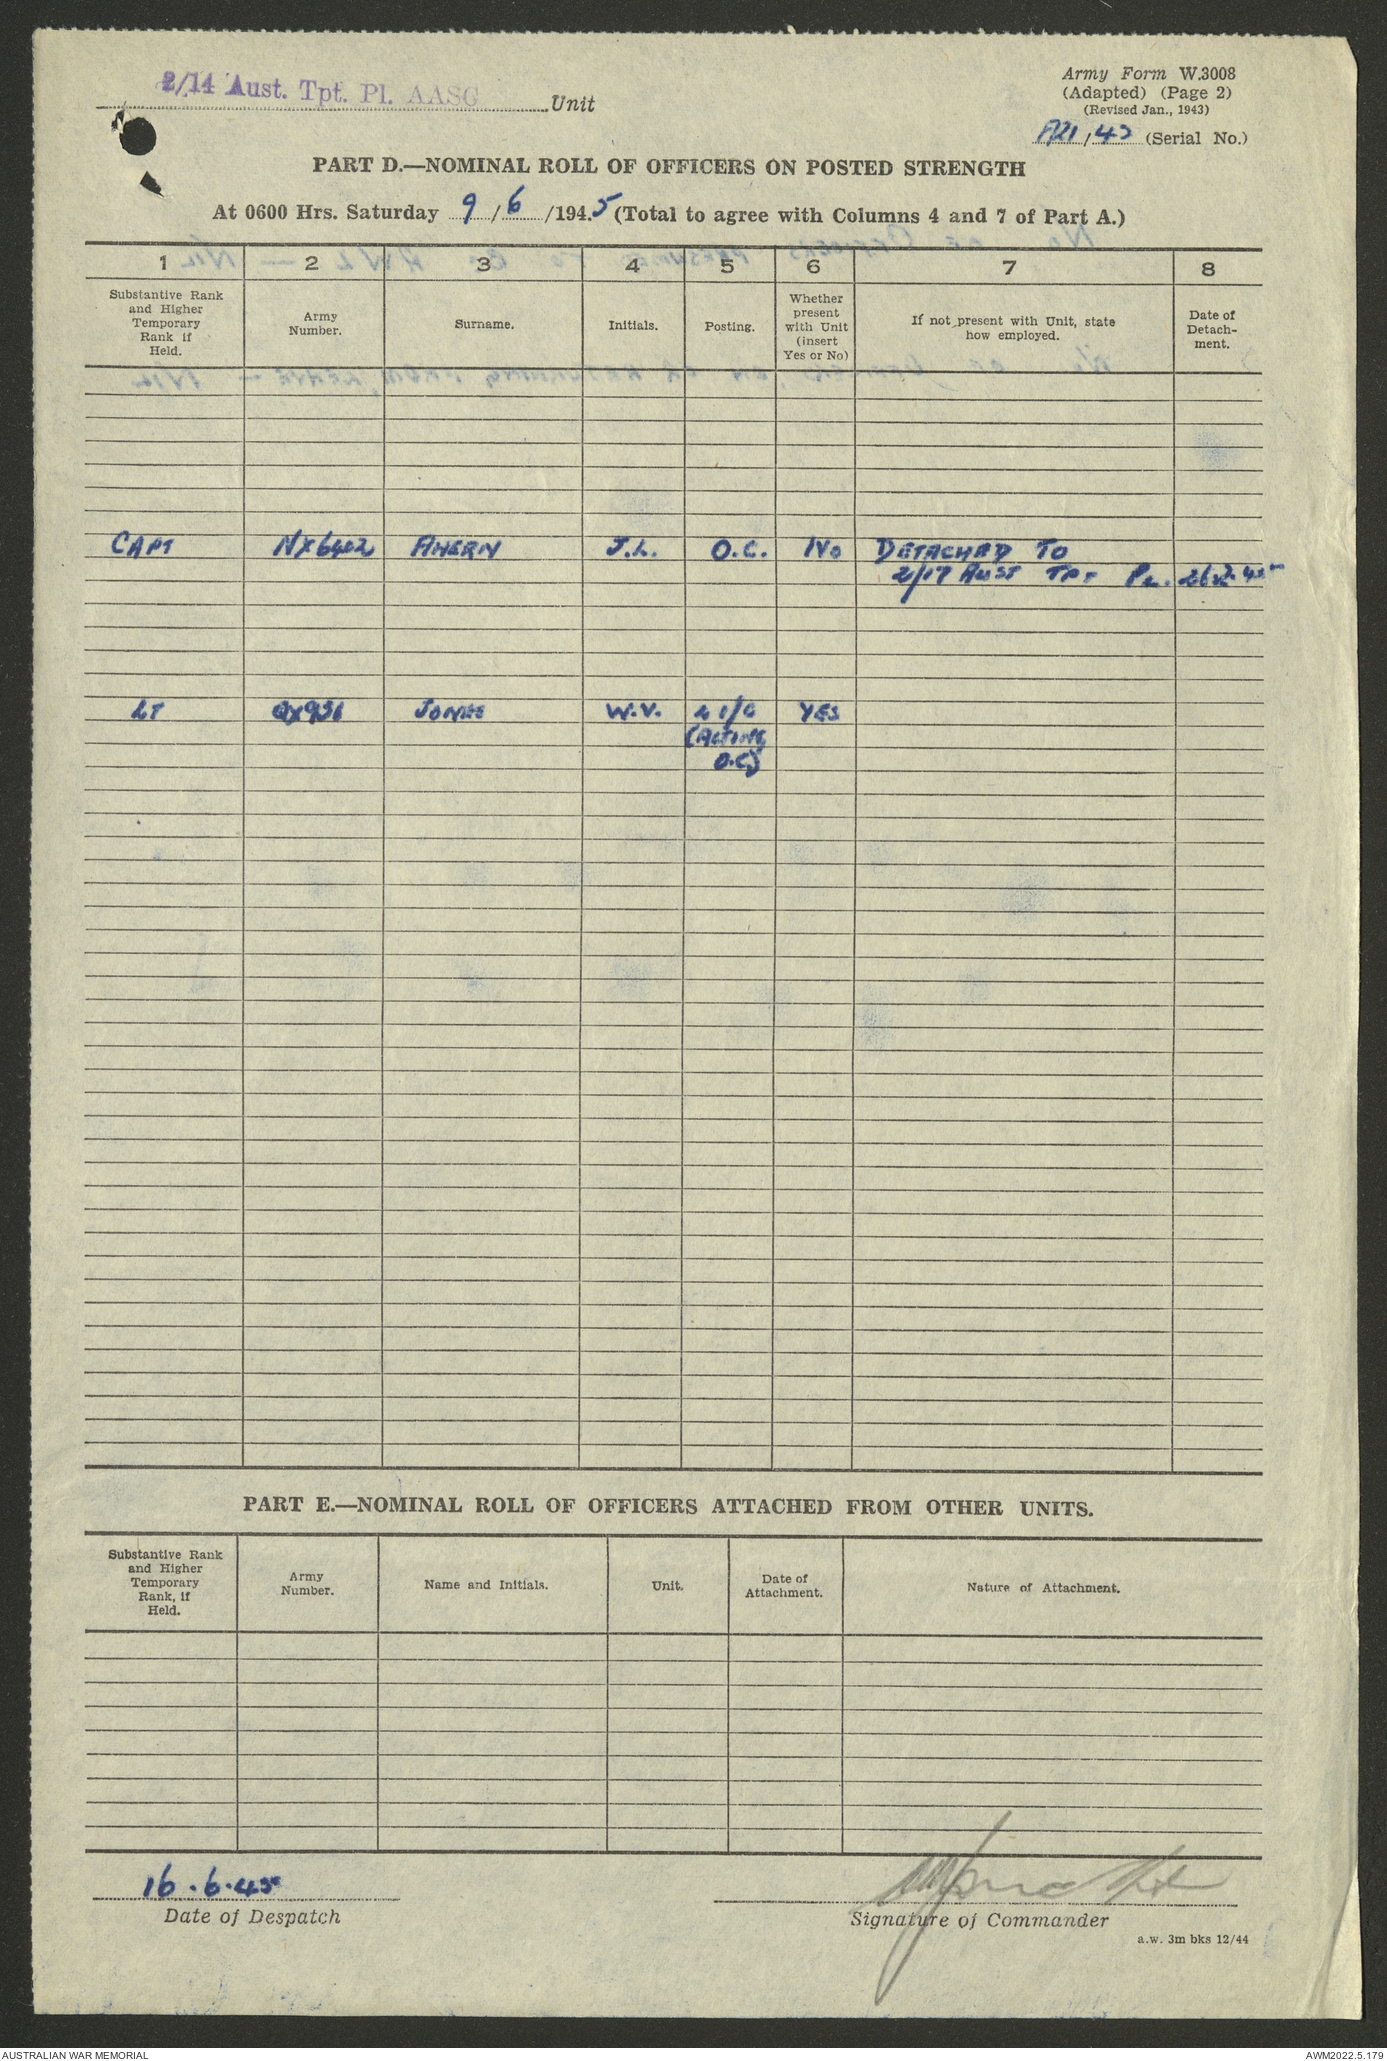 2/14 Aust. Tpt. Pl. AASC Unit
Army Form W.3008
(Adapted) (Page 2)
(Revised Jan., 1943)
(Serial No.)
PART D.—NOMINAL ROLL OF OFFICERS ON POSTED STRENGTH
At 0600 Hrs. Saturday 9/6/1945 (Total to agree with Columns 4 and 7 of Part A.)
1 2 3 4 5 6 7 8
Substantive Rank and Higher Temporary Rank if Held.
Army Number.
Surname.
Initials.
Posting.
Whether present with Unit (insert Yes or No)
If not present with Unit, state how employed.
Date of Detach-ment.
CAPT NX6402 AHERN J.L. O.C. No DETACHED TO
2/17 AUST TPT PL.
LT QX951 JONES W.V. 2 I/C YES
(ACTING
O.C.)
PART E.—NOMINAL ROLL OF OFFICERS ATTACHED FROM OTHER UNITS.
Substantive Rank and Higher Temporary Rank, if Held.
Army Number.
Name and Initials.
Unit.
Date of Attachment.
Nature of Attachment.
16.6.45
Date of Despatch
Signature of Commander
a.w. 3m bks 12/44
AUSTRALIAN WAR MEMORIAL
AWM2022.5.179